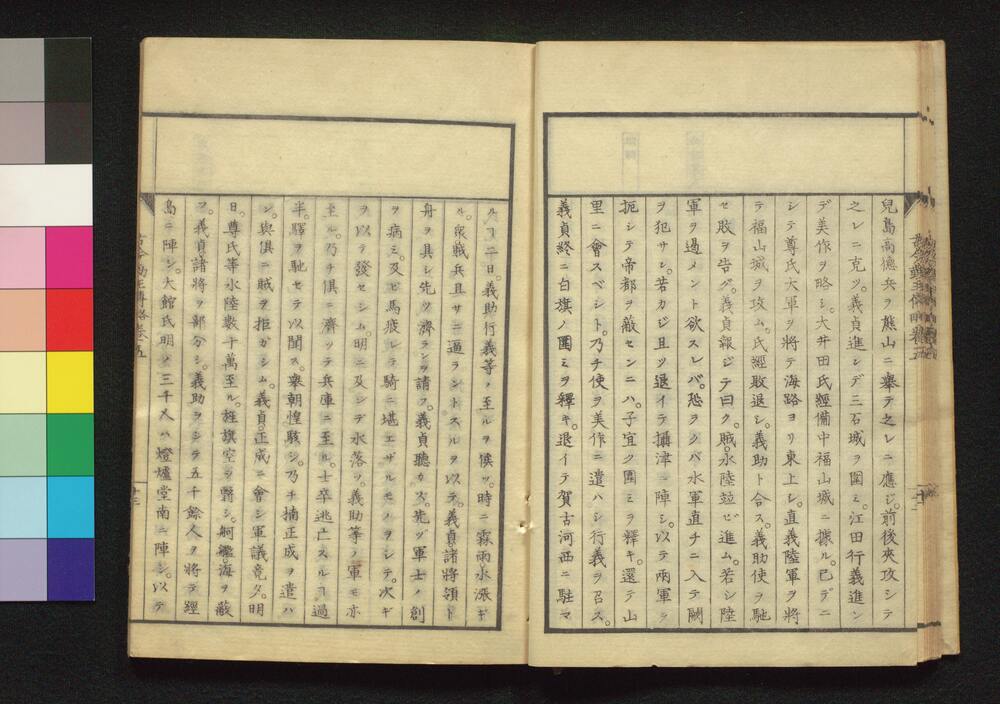 兒島高德兵ヲ熊山ニ擧テ之レニ應ジ。前後夾攻シテ
之レニ克ツ。義貞進ンデ三石城ヲ圍ミ。江田行義進ン
デ美作ヲ略シ。大井田氏經備中福山城ニ據ル。已デニ
シテ尊氏大軍ヲ將テ海路ヨリ東上シ。直義陸軍ヲ將
テ福山城ヲ攻ム。氏經敗退シ。義助ト合ス。義助使ヲ馳
セ敗ヲ告グ。義貞報ジテ曰ク。賊水陸竝ビ進ム。若シ陸
軍ヲ遏メント欲スレバ。恐ラクバ水軍直チニ入テ闕
ヲ犯サン。若カジ且ツ退イテ攝津ニ陣シ。以テ兩軍ヲ
扼シテ帝都ヲ蔽センニハ。子宜ク圍ミヲ釋キ。還テ山
里ニ會スベシト。乃チ使ヲ美作ニ遣ハシ行義ヲ召ス。
義貞終ニ白旗ノ圍ミヲ釋キ。退イテ賀古河西ニ駐マ
ルヿ二日。義助行義等ノ至ルヲ候ツ。時ニ霖雨水漲ギ
ル。衆賊兵且サニ逼ラントスルヲ以テ。義貞諸將領ト
舟ヲ具シ先ヅ濟ランヿヲ請フ。義貞聽カズ。先ヅ軍士ノ創
ヲ病ミ。及ビ馬疲レテ騎ニ堪エザルモノヲシテ。次ギ
ヲ以テ發セシム。明ニ及ンデ水落ツ。義助等ノ軍モ亦
至ル。乃チ俱ニ濟ッテ兵庫ニ至ル。士卒逃亡スルヿ過
半。驛ヲ馳セテ以聞ス。擧朝惶駭シ。乃チ楠正成ヲ遣ハ
シ。與俱ニ賊ヲ拒ガシム。義貞。正成ニ會シ軍議竟タ。明
日。尊氏等水陸數十萬至ル。旌旗空ヲ翳シ。舸艦海ヲ蔽
フ。義貞諸將ヲ部分シ。義助ヲシテ五千餘人ヲ將テ經
島ニ陣シ。大館氏明ノ三千人ハ燈爐堂南ニ陣シ。以テ